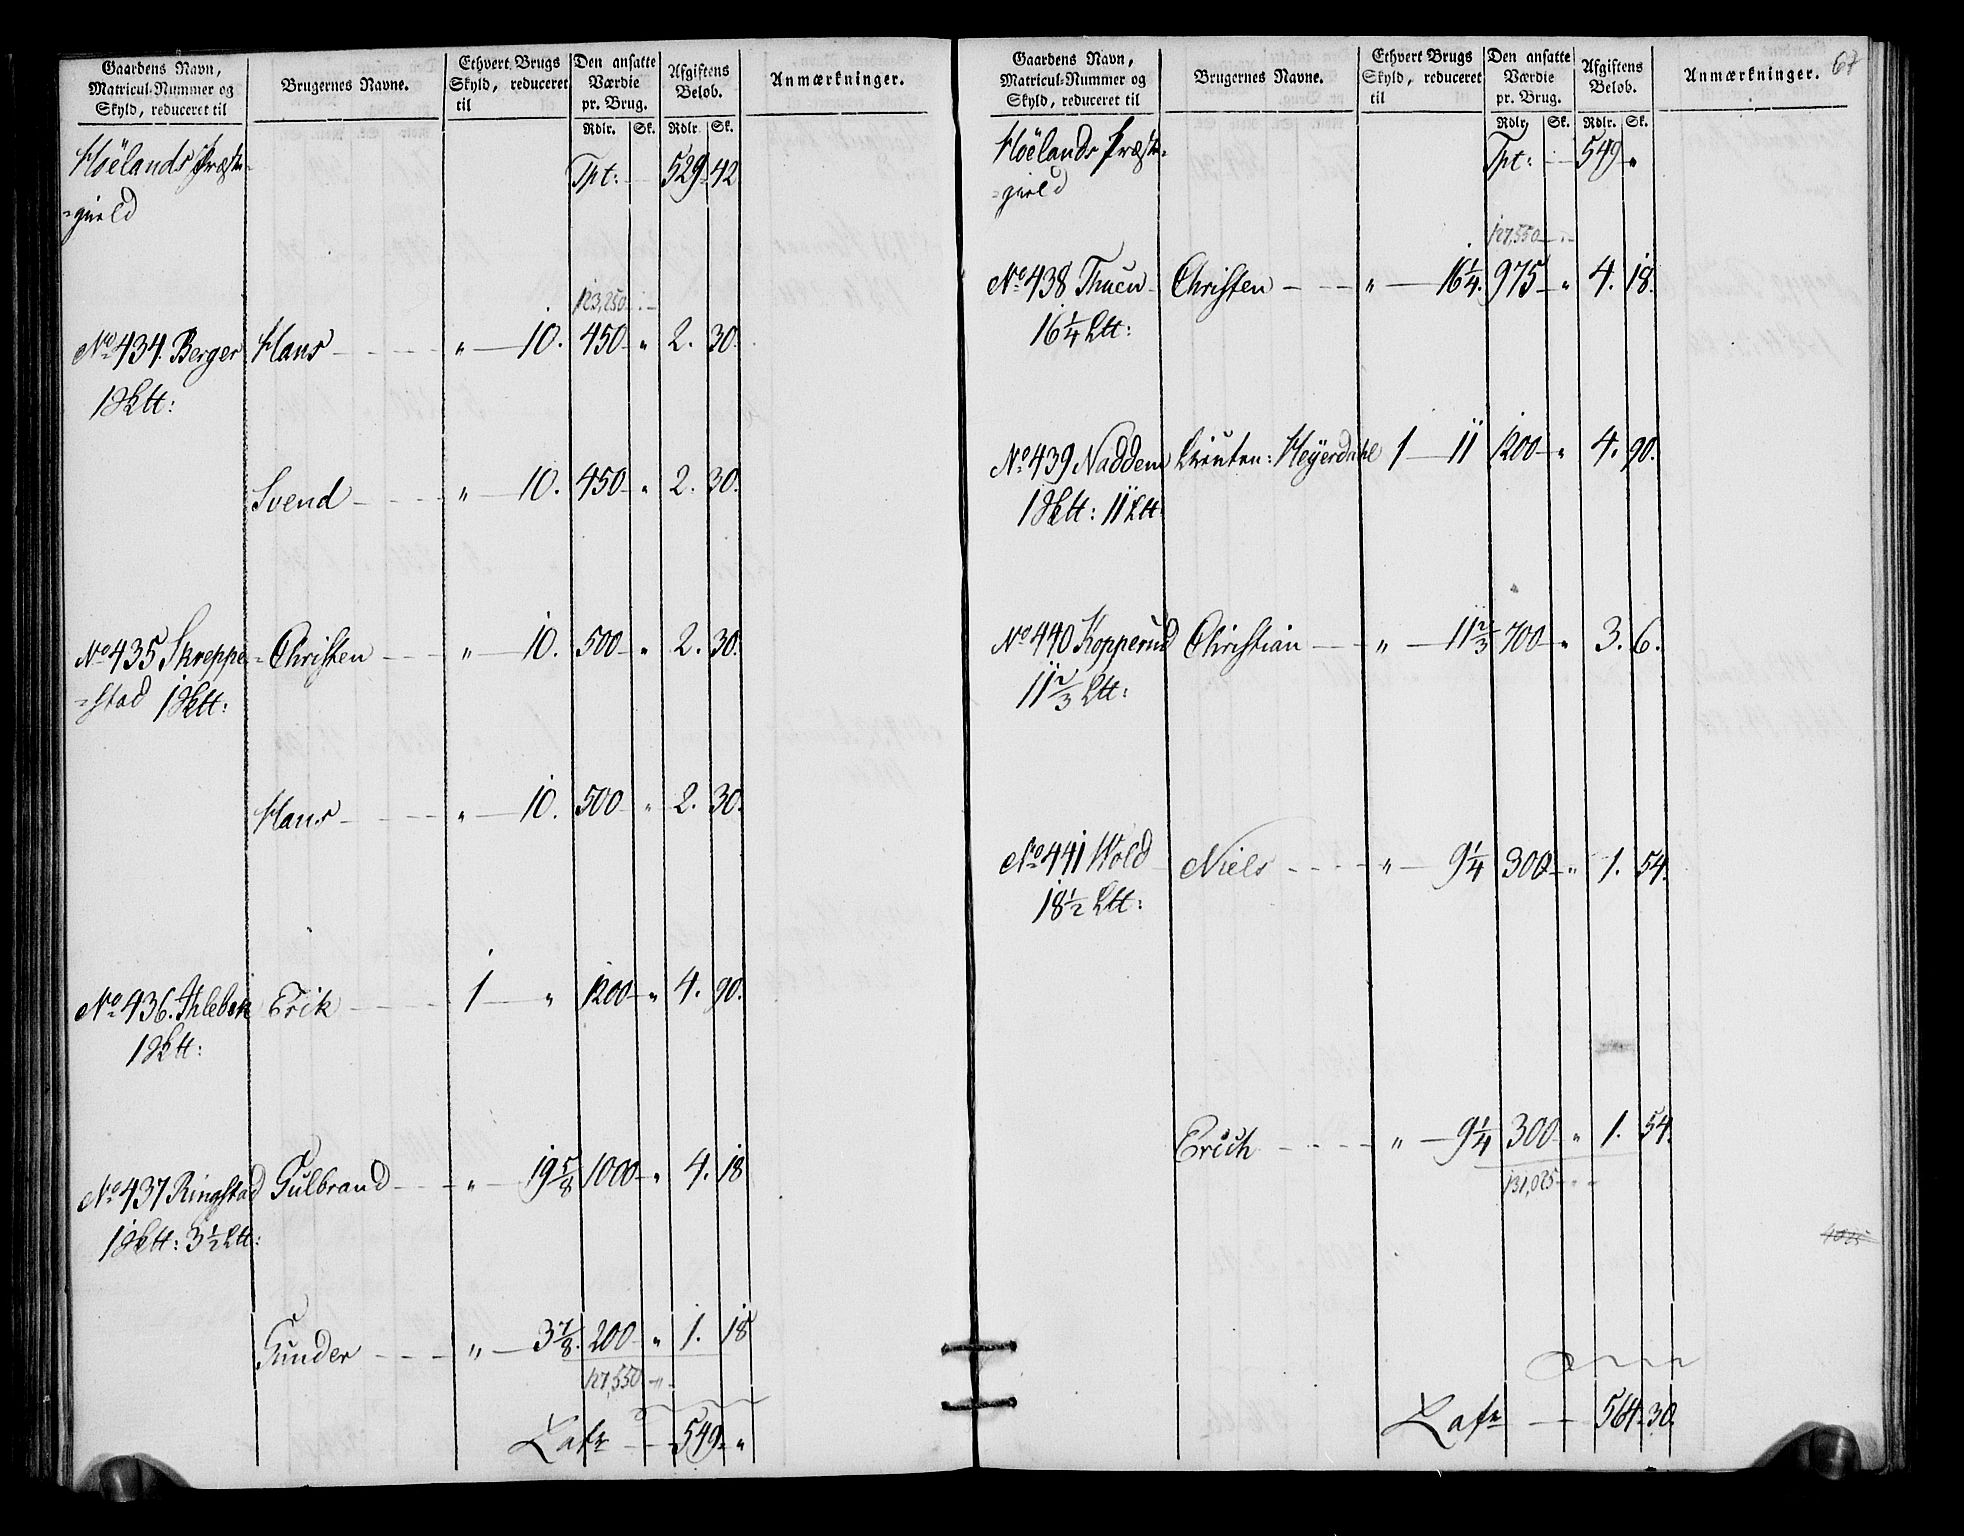 Gaardens Navn,
Matricul-Nummer og
Skyld, reduceret til
Brugernes Navne.
Ethvert Brugs
Skyld, reduceret
til
Den ansatte
Værdie
pr. Brug.
Rdlr. Sk.
Afgiftens
Beløb.
Rdlr. Sk.
Anmærkninger.
Høelands Præste-
=gield
Tpt: 529. 42
123,250
No 434. Berger Hans " 10. 450 " 2. 30.
1 Sktt:
Svend " 10. 450 " 2. 30.
No 435 Skreppe= Christen " 10. 500 " 2. 30.
=stad 1 Sktt:
Hans " 10. 500 " 2. 30.
No 436. Ihlebek Erik 1 " 1200 " 4. 90.
1 Sktt:
No 437 Ringstad Gulbrand " 19 5/8 1000 " 4. 18
1 Sktt: 3 1/2 Ltt:
Gunder " 3 7/8. 200 " 1. 18
127,550 "
Lats 549 "
Gaardens Navn,
Matricul-Nummer og
Skyld, reduceret til
Brugernes Navne.
Ethvert Brugs
Skyld, reduceret
til
Den ansatte
Værdie
pr. Brug.
Rdlr. Sk.
Afgiftens
Beløb.
Rdlr. Sk.
Anmærkninger.
67
Høelands Præste=
=gield
Tpt: 549 "
127,550
No 438 Thuen Christen " 16 1/4. 975 " 4. 18.
16 1/4 Ltt:
No 439 Nadden Lieuten: Heyerdahl 1 11 1200 " 4. 90.
1 Sktt: 11 Ltt
No 440 Kopperud Christian " 11 2/3 700 " 3. 6.
11 2/3 Ltt:
No 441 Wold Niels " 9 1/4 300 " 1. 54.
18 1/2 Ltt:
Erich " 9 1/4 300 " 1. 54.
131,025
Lats 564. 30.